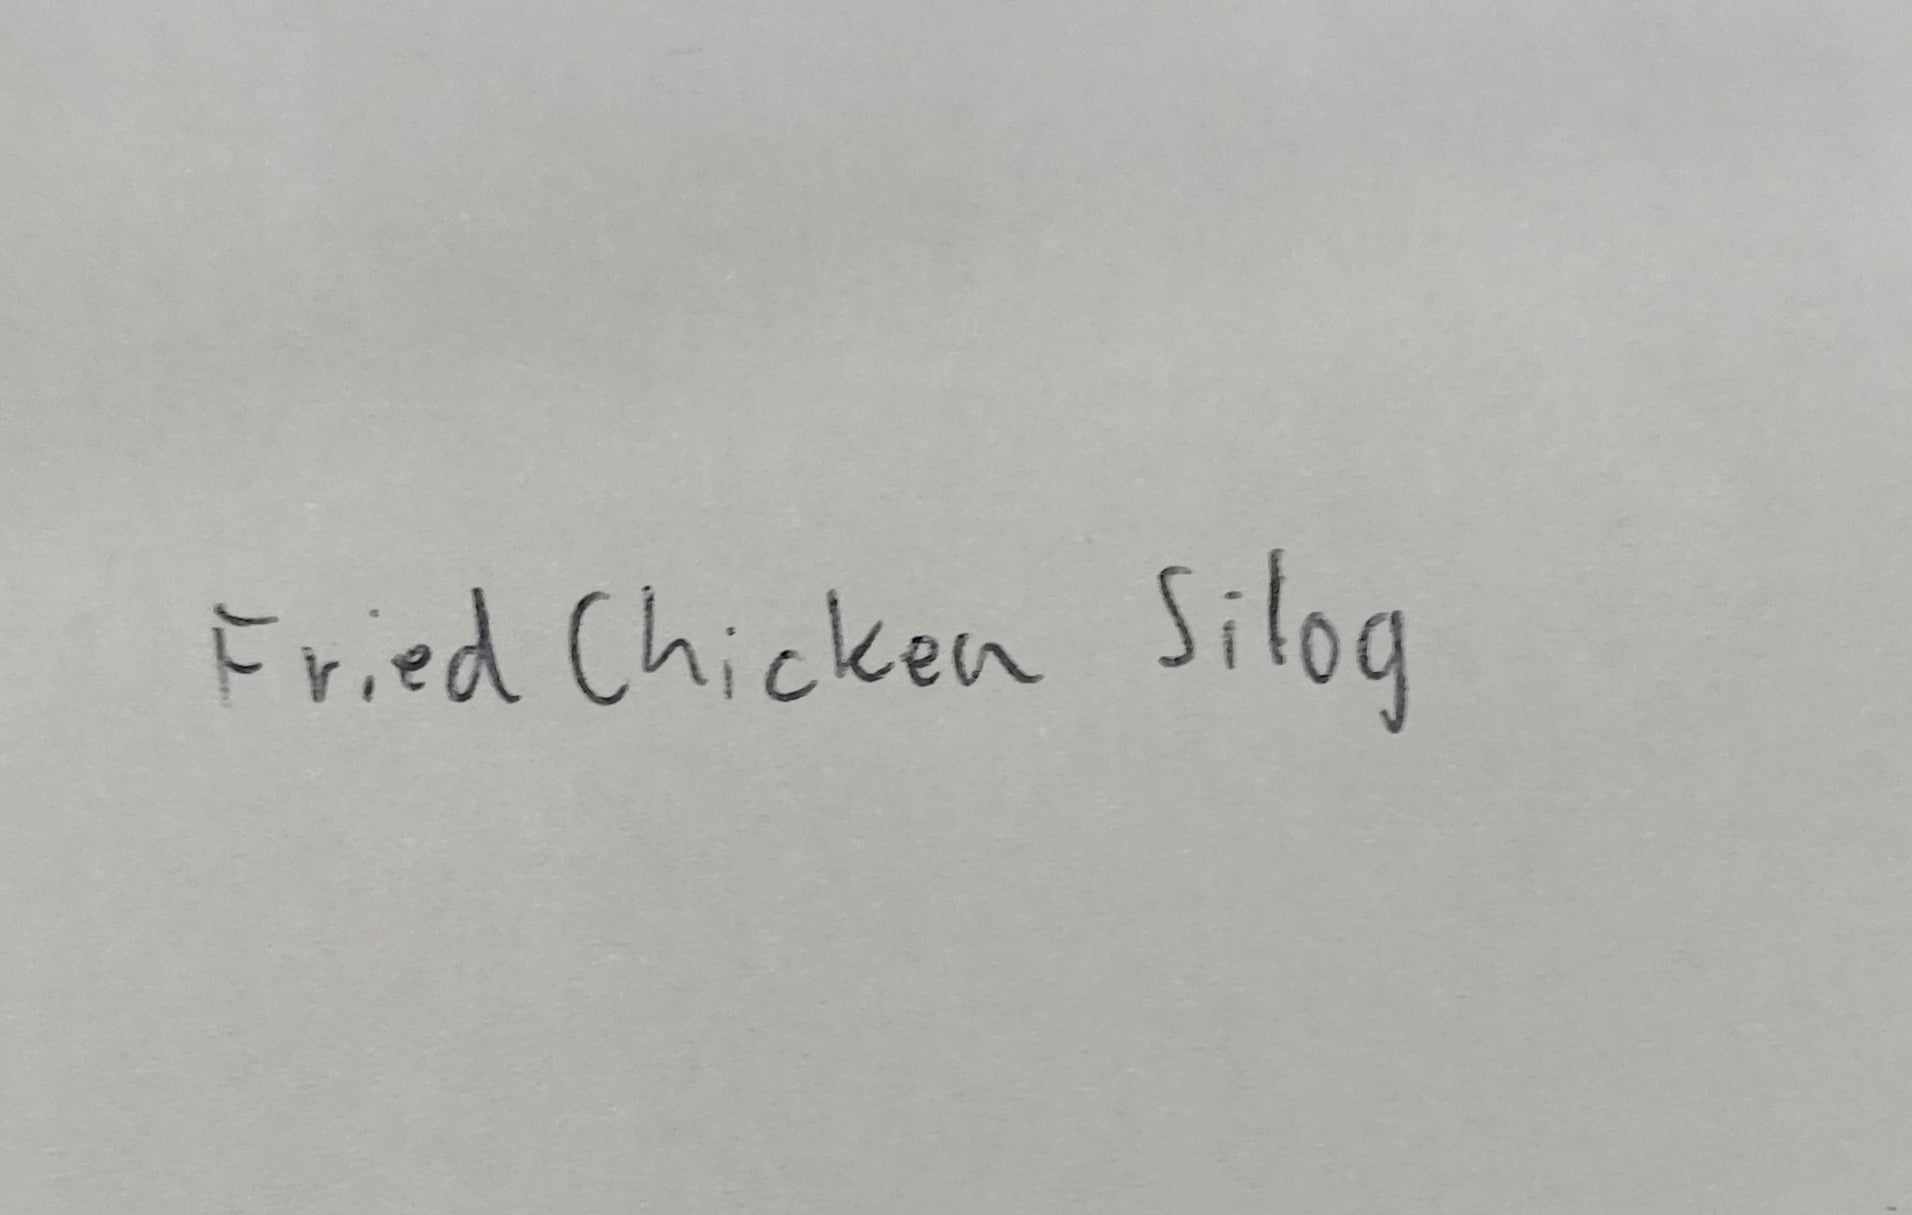 Fried Chicken Silog